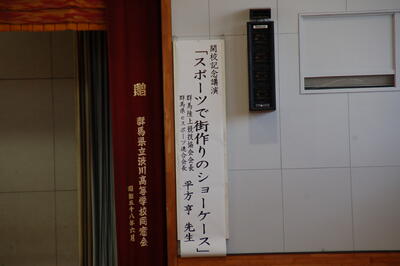 開校記念講演
「スポーツで街作りのショーケース」
群馬陸上競技協会会長
群馬県eスポーツ連合会長
平方亨 先生
贈
群馬県立渋川高等学校同窓会
昭和五十八年六月